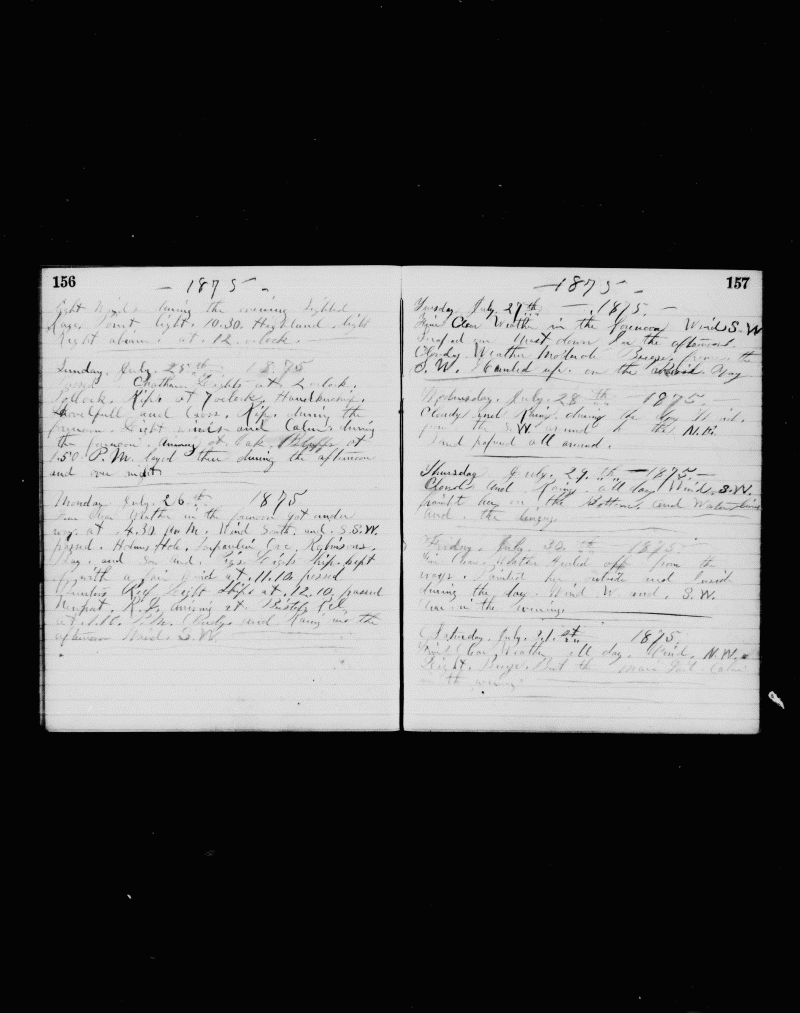 156
— 1875 —
Light Winds during the evening Sighted
Point light. 10.30. Highland light
at 12. o.clock.
Sunday. July. 25th 1875
Chatham Lights at 2 oclock.
Rips at 7 oclock, Handkerchief.
Shovelfull and Cross. Rip. during the
forenoon. Light winds and Calm. during
the forenoon. at Oak. Bluffs at
1.50 P.M. layed there during the afternoon
and over night
Monday. July. 26th 1875
Fine Clear Weather in the forenoon got under
way at 4.30 A.M. Wind South. and S.S.W.
passed. Holmes Hole. Tarpaulin Cove. Robinsons.
and Light Ship. kept
with a fair wind at 11.10 passed
Reef Light Ship at 12.10. passed
Newport. R.I. arriving at Bristol R.I.
at P.M. Cloudy and Rainy in the
afternoon Wind. S.W.
157
— 1875 —
Tuesday July. 27th — 1875. —
Fine Clear Weather in the forenoon Wind S.W
down In the afternoon.
Cloudy Weather Moderate Breeze from the
S.W. Hauled up. on the Way
Wednesday. July. 28th — 1875. —
Cloudy and Rainy during the day Wind.
from the S.W. around to the N.E.
and all around.
Thursday July. 29.th — 1875 —
Cloudy and Rainy. all day Wind. S.W.
her on the Bottom. and Waterline
and the
Friday. July. 30.th 1875.
Fine Clear. Weather Hauled off from the
ways. Painted her outside and Inside
during the day. Wind W and. S.W.
Clear in the evening.
Saturday. July. 31.st 1875.
Clear Weather all day. Wind. N.W.
Breeze. Bent the main Sail. Calm
in the evening.